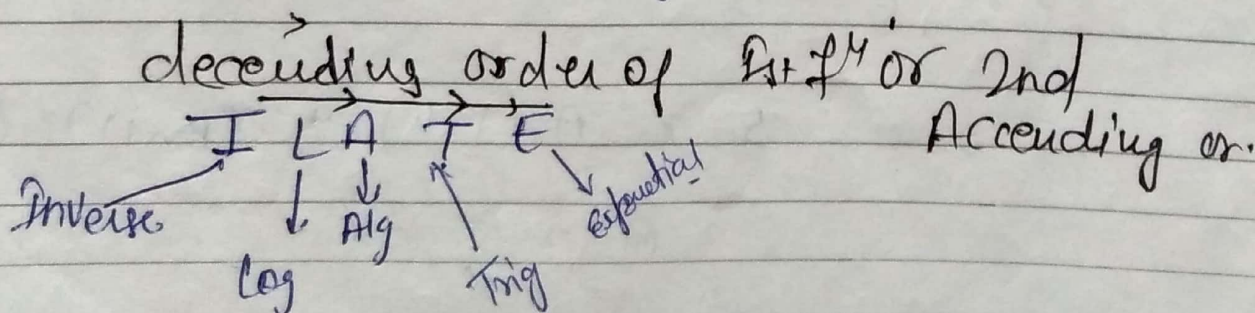 decending order of Ist fⁿ or 2nd
Accending or.
I L A T E
Inverse
Log
Alg
Trig
Exponential